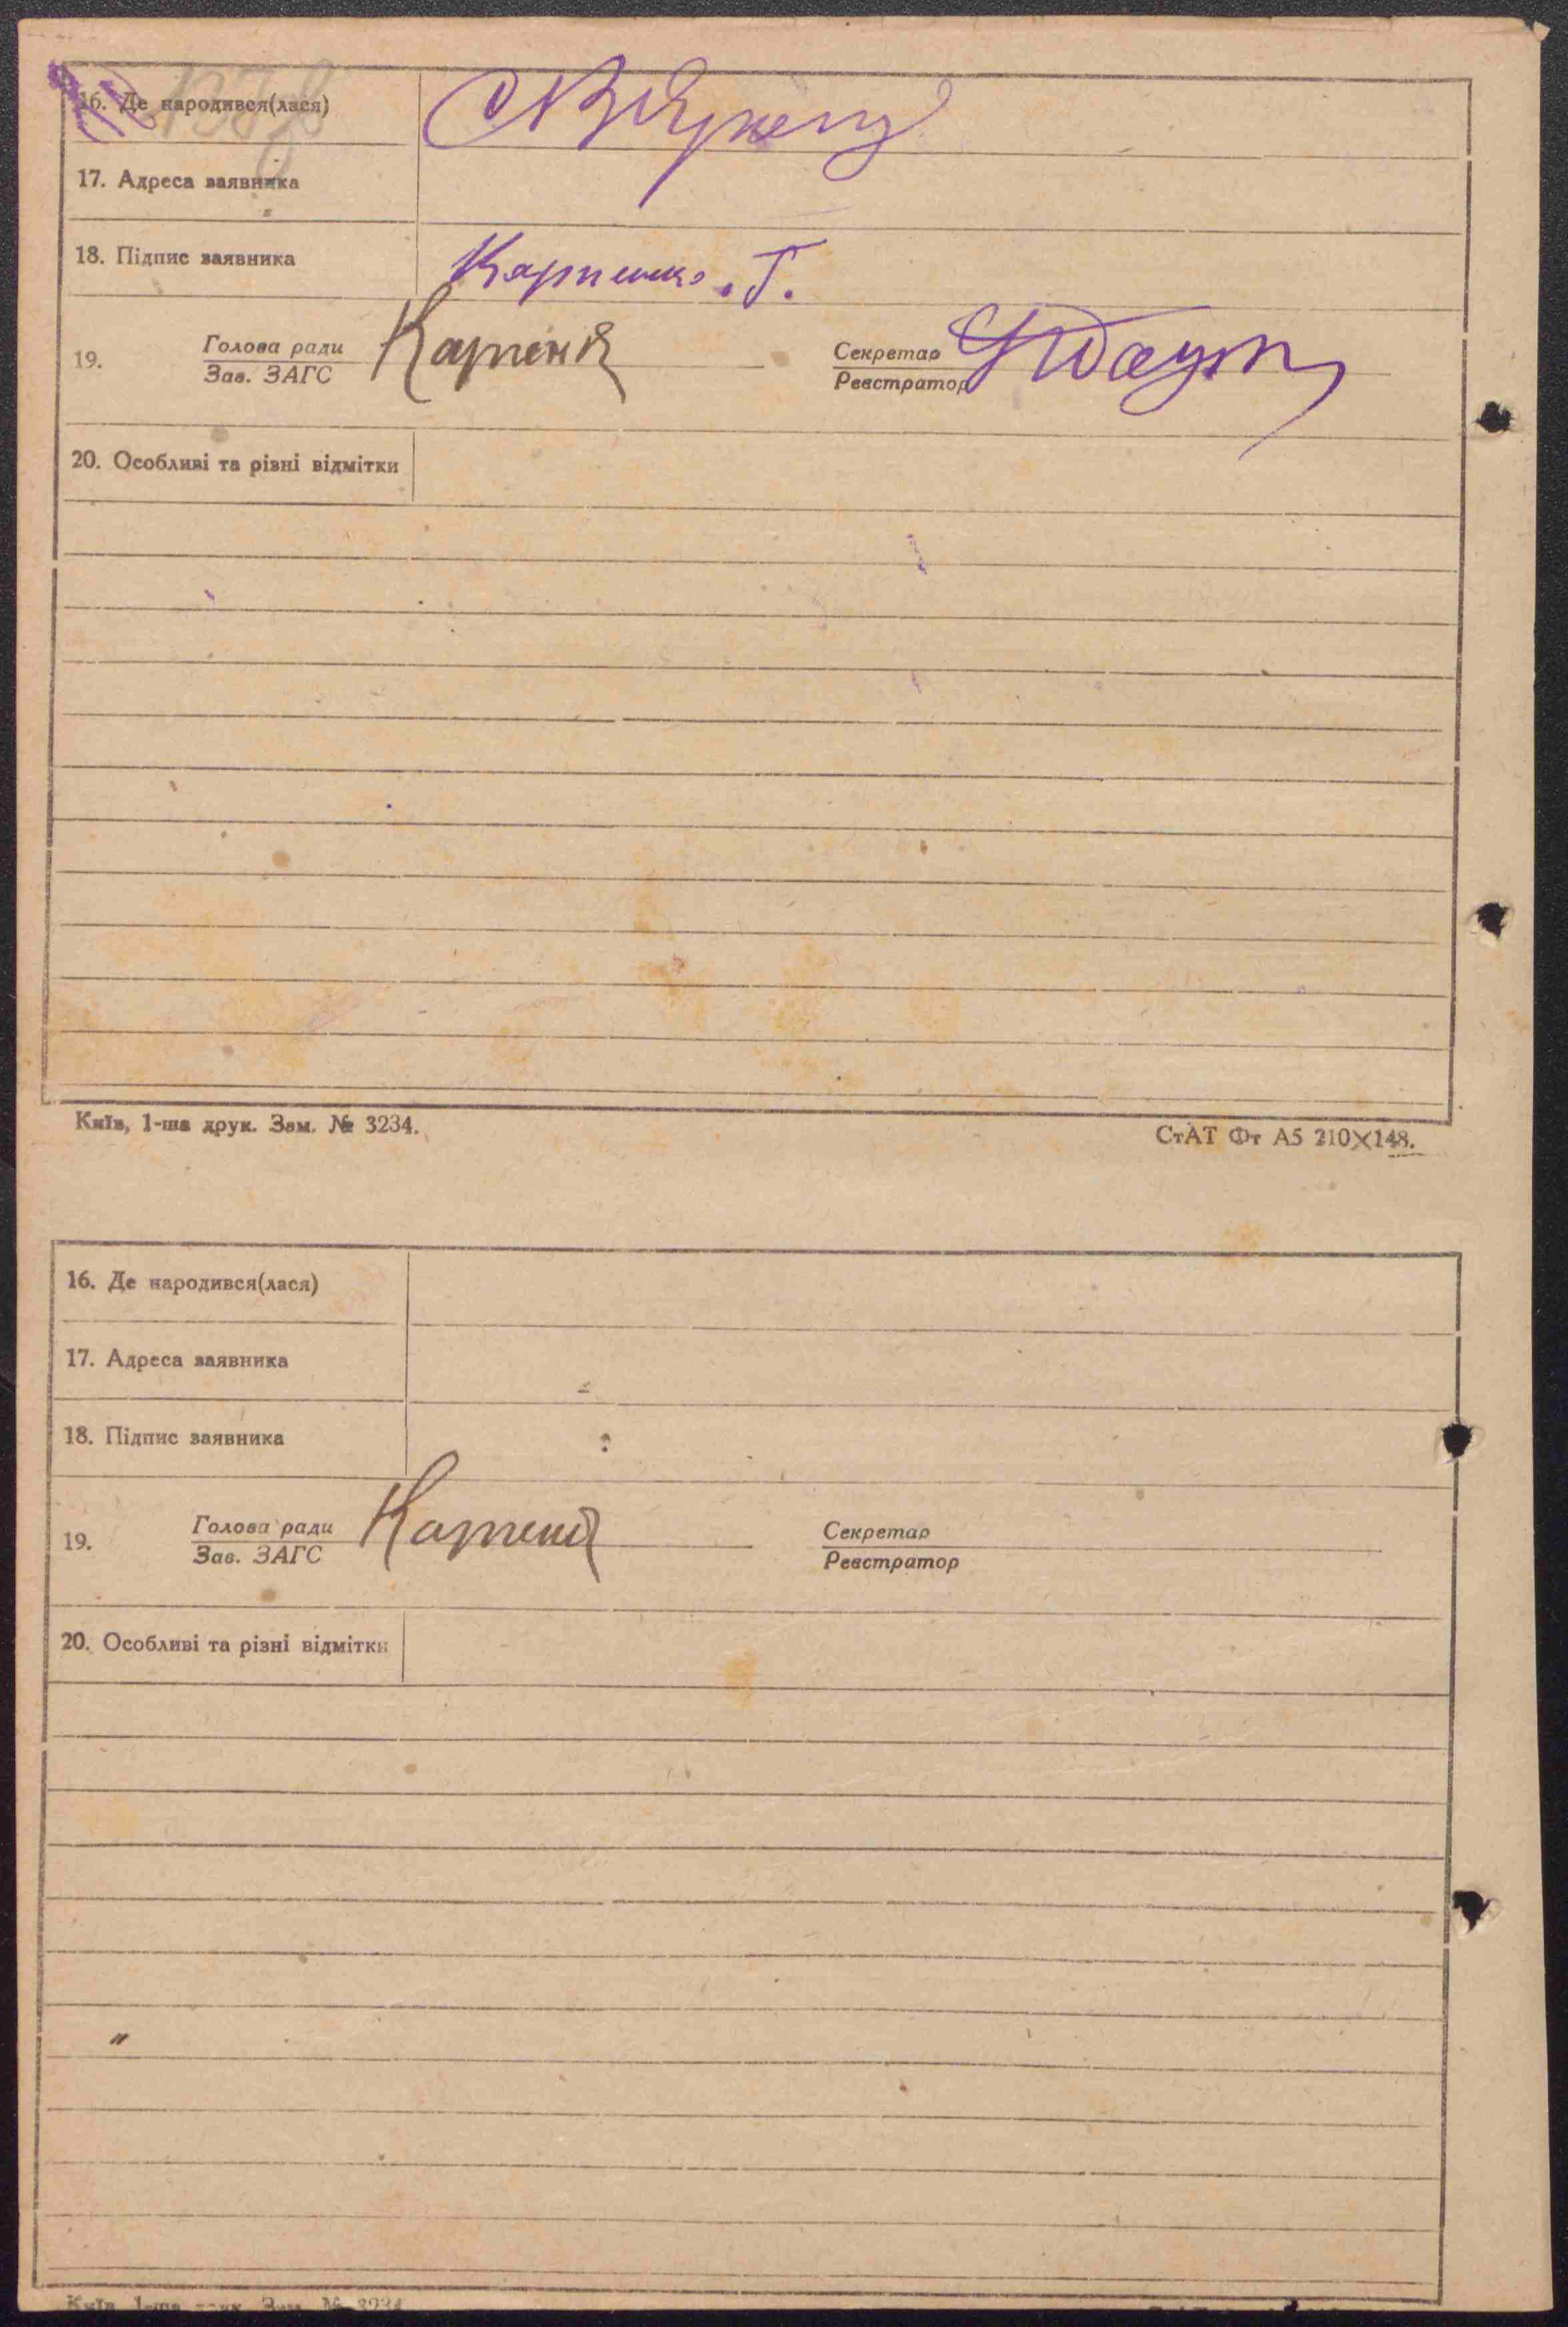 16. Де народився(лася)
17. Адреса заявника
18. Підпис заявника Карпенко. Г.
19. Голова ради
Зав. ЗАГС
Секретар
Реєстратор
20. Особливі та різні відмітки
Київ, 1-ша друк. Зам. № 3234.
СтАТ Фт А5 210×148.
16. Де народився(лася)
17. Адреса заявника
18. Підпис заявника
19. Голова ради
Зав. ЗАГС
Секретар
Реєстратор
20. Особливі та різні відмітки
Київ, 1-ша друк. Зам. № 3234